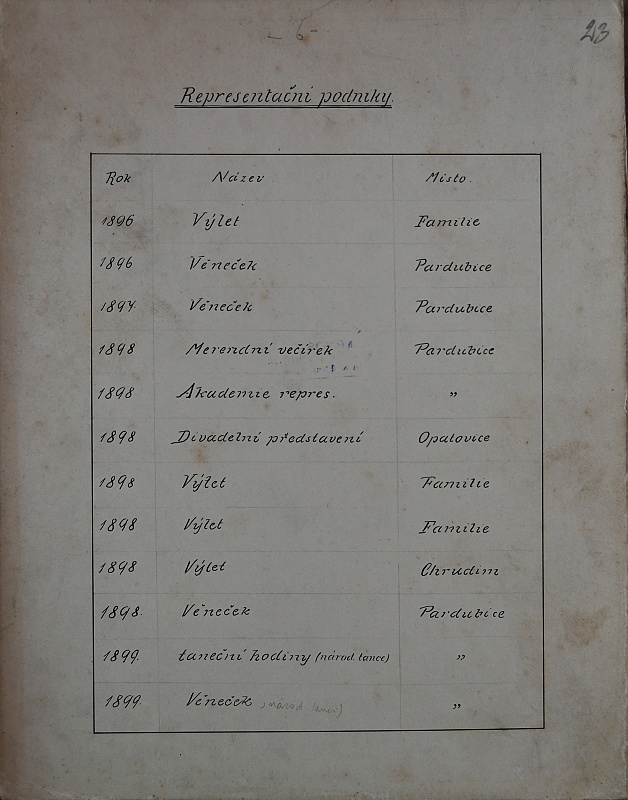 - 6 -
23
Representační podniky.
Rok Název Místo.
1896 Výlet Familie
1896 Věneček Pardubice
1897 Věneček Pardubice
1898 Merendní večírek Pardubice
1898 Akademie repres. "
1898 Divadelní představení Opatovice
1898 Výlet Familie
1898 Výlet Familie
1898 Výlet Chrudim
1898. Věneček Pardubice
1899. taneční hodiny (národ. tance) "
1899. Věneček "